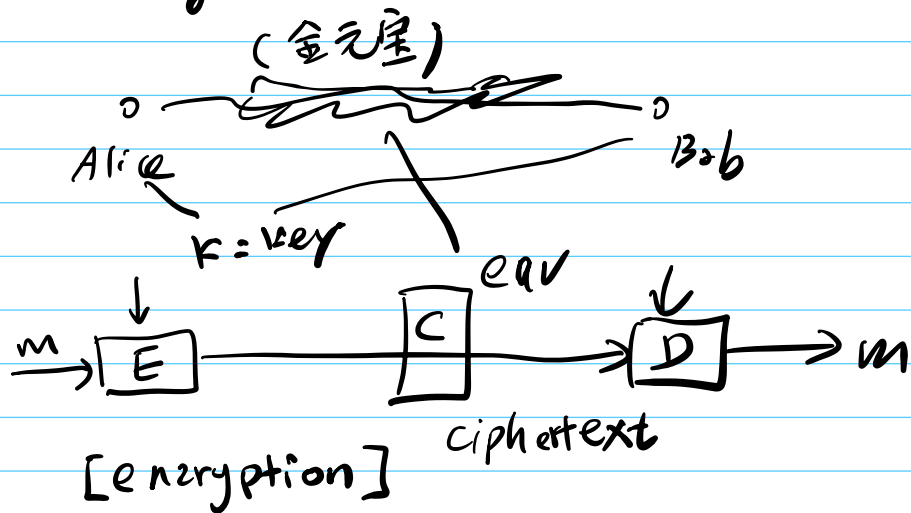 (金元宝)
Alice
Bob
k = key
eav
m
E
C
D
m
ciphertext
[encryption]